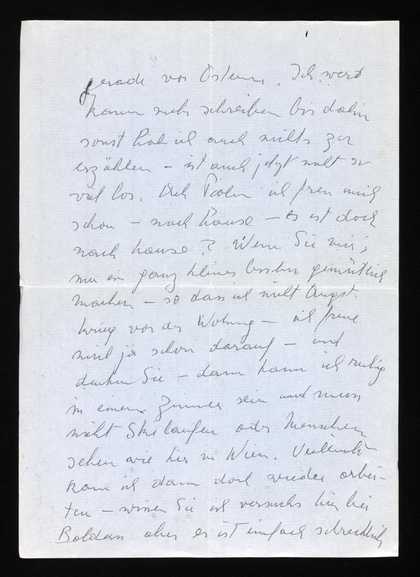 gerade vor Ostern. Ich werd
kaum mehr schreiben bis dahin
sonst hab ich auch nichts zu
erzählen – ist auch jetzt nicht so
viel los. Ach ich freu mich
schon – nach hause – es ist doch
nach hause? Wenn Sie mir's
nur ein ganz kleines bisschen gemütlich
machen – so dass ich nicht Angst
krieg vor der Wohnung – ich freue
mich ja schon darauf – und
denken Sie – dann kann ich ruhig
in einem Zimmer sein und muss
nicht Ski laufen oder Menschen
sehen wie hier in Wien. Vielleicht
kann ich dann doch wieder arbei-
ten – wissen Sie ich versuchs hier bei
aber es ist einfach schrecklich